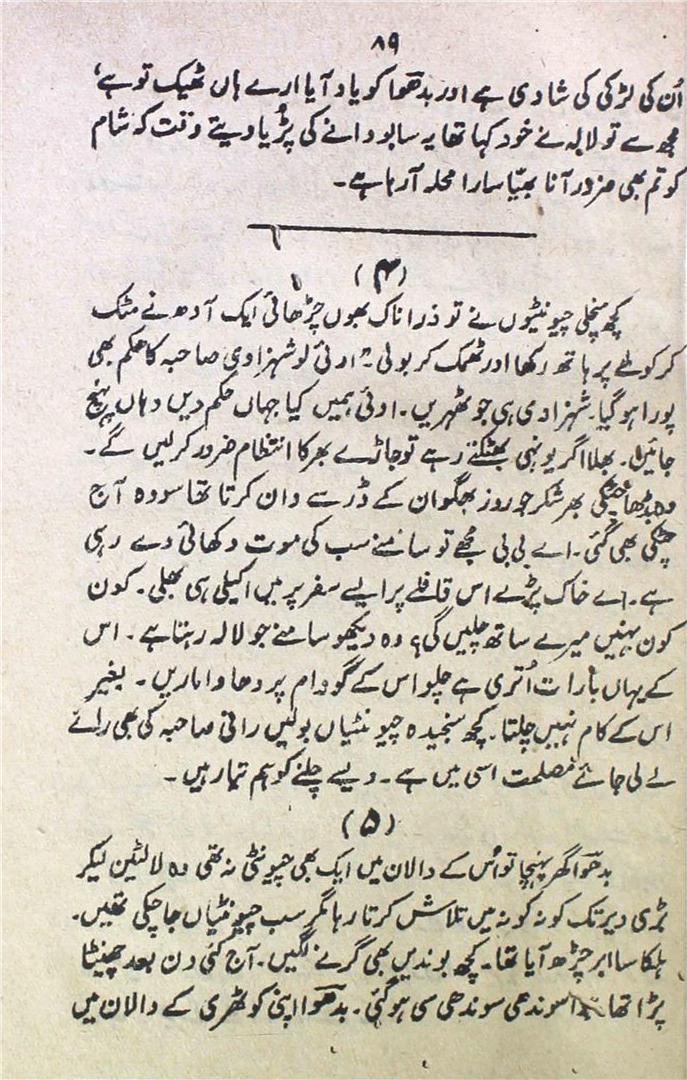 ۸۹
اُن کی لڑکی کی شادی ہے اور بدھوا کو یاد آیا ارے ہاں ٹھیک تو ہے،
مجھ سے تو لالہ نے خود کہا تھا یہ سابودانے کی پڑیا دیتے وقت کہ شام
کو تم بھی ضرور آنا بھیّا سارا محلہ آرہا ہے۔
(۴)
کچھ منچلی چیونٹیوں نے تو ذرا ناک بھوں چڑھائی ایک آدھ نے مٹک
کر کولھے پر ہاتھ رکھا اور ٹھمک کر بولی۔ اوئی لو شہزادی صاحبہ کا حکم بھی
پورا ہو گیا۔ شہزادی ہی جو ٹھہریں۔ اوئی ہمیں کیا جہاں حکم دیں وہاں پہنچ
جائیں۔ بھلا اگر یونہی بھٹکتے رہے تو جاڑے بھر کا انتظام ضرور کر لیں گے۔
وہ بڈھا چٹکی بھر شکر جو روز بھگوان کے ڈر سے دان کرتا تھا سو وہ آج
چٹکی بھی گئی۔ اے بی بی مجھے تو سامنے سب کی موت دکھائی دے رہی
ہے۔ اے خاک پڑے اس قافلے پر ایسے سفر پر میں اکیلی ہی بھلی۔ کون
کون بہنیں میرے ساتھ چلیں گی؟ وہ دیکھو سامنے جو لالہ رہتا ہے۔ اس
کے یہاں بارات اُتری ہے چلو اس کے گودام پر دھاوا ماریں۔ بغیر
اس کے کام نہیں چلتا۔ کچھ سنجیدہ چیونٹیاں بولیں رانی صاحبہ کی بھی رائے
لے لی جائے مصلحت اسی میں ہے۔ ویسے چلنے کو ہم تیار ہیں۔
(۵)
بدھوا گھر پہنچا تو اُس کے دالان میں ایک بھی چیونٹی نہ تھی وہ لالٹین لیکر
بڑی دیر تک کونہ کونہ میں تلاش کرتا رہا مگر سب چیونٹیاں جا چکی تھیں۔
ہلکا سا ابر چڑھ آیا تھا۔ کچھ بوندیں بھی گرنے لگیں۔ آج کئی دن بعد چھینٹا
پڑا تھا سوندھی سوندھی سی ہو گئی۔ بدھوا اپنی کوٹھری کے دالان میں